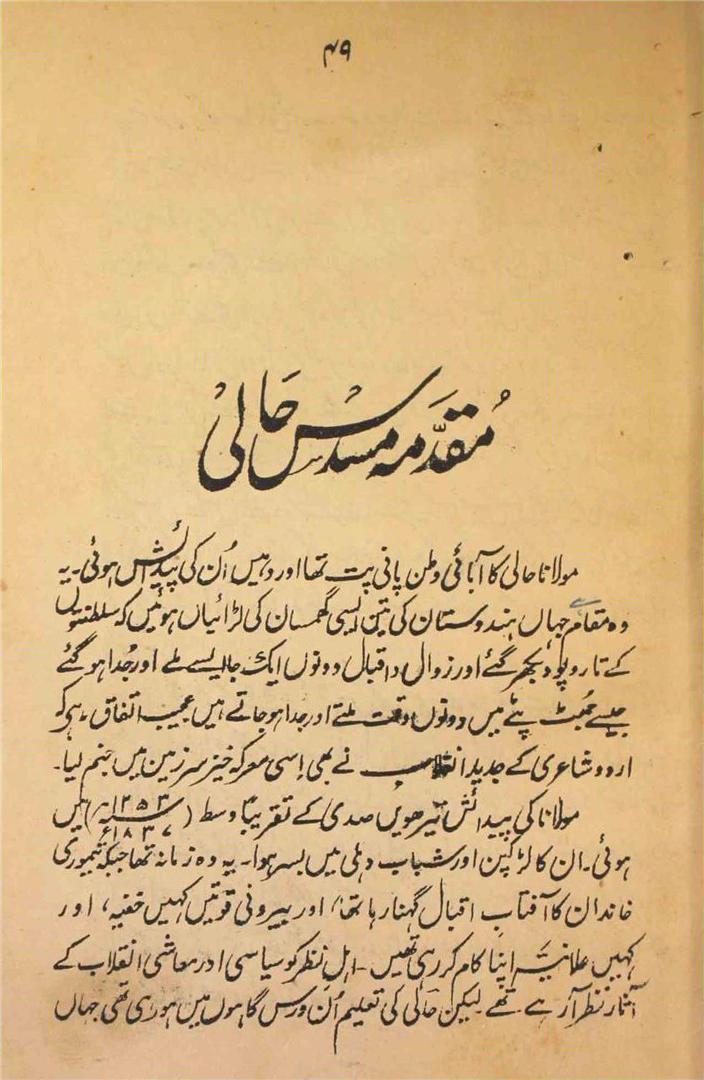 ۴۹
مُقدّمہ مسدسِ حالیؔ
مولانا حالی کا آبائی وطن پانی پت تھا اور وہیں اُن کی پیدائش ہوئی۔ یہ
وہ مقام ہے جہاں ہندوستان کی تین ایسی گھمسان کی لڑائیاں ہوئیں کہ سلطنتوں
کے تار و پود بکھر گئے اور زوال و اقبال دونوں ایک جا ایسے ملے اور جُدا ہو گئے
جیسے جُھٹ پٹے میں دونوں وقت ملتے اور جدا ہو جاتے ہیں عجیب اتفاق ہے کہ
اردو شاعری کے جدید انقلاب نے بھی اِسی معرکہ خیز سر زمین میں جنم لیا۔
مولانا کی پیدائش تیرھویں صدی کے تقریبًا وسط (۱۲۵۳ھ ۱۸۳۷ء) میں
ہوئی۔ ان کا لڑکپن اور شباب دہلی میں بسر ہوا۔ یہ وہ زمانہ تھا جبکہ تیموری
خاندان کا آفتابِ اقبال گہنا رہا تھا، اور بیرونی قوتیں کہیں خفیہ، اور
کہیں علانیہ اپنا کام کر رہی تھیں۔ اہلِ نظر کو سیاسی اور معاشی انقلاب کے
آثار نظر آ رہے تھے۔ لیکن حالیؔ کی تعلیم اُن درس گاہوں میں ہو رہی تھی جہاں